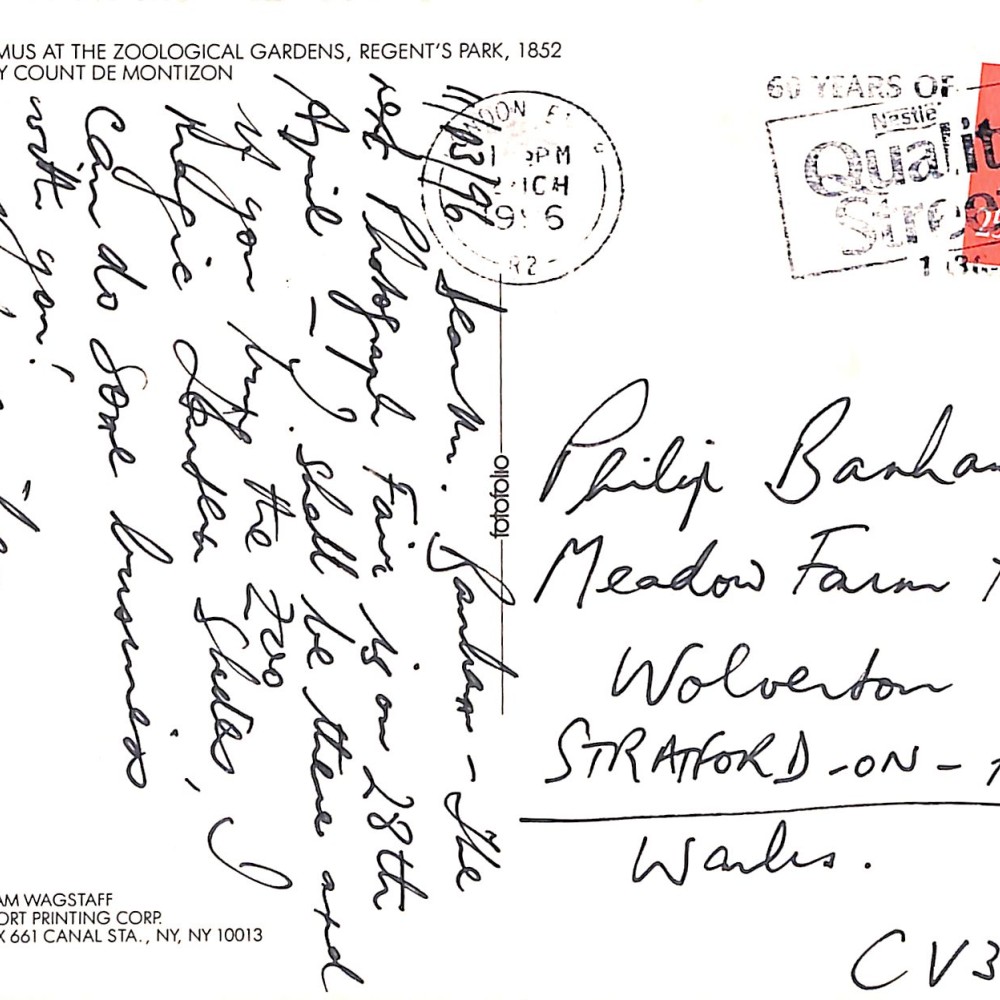 MUS AT THE ZOOLOGICAL GARDENS, REGENT'S PARK, 1852
Y COUNT DE MONTIZON
11/03/96 Dear Mr. Banham - The
next Photograph Fair is on 28th
April - I shall be there and
if you bring the Zoo
Mafie Lantern Slides, I
Can do some business
with you!
LONDON E
PM
MCH
1996
R2
60 YEARS OF
Nestlé
Qualit
Stre
1936-
25
fotofolio
Philip Banha
Meadow Farm
Wolverton
STRATFORD-ON-A
Warks.
CV3
AM WAGSTAFF
ORT PRINTING CORP.
X 661 CANAL STA., NY, NY 10013